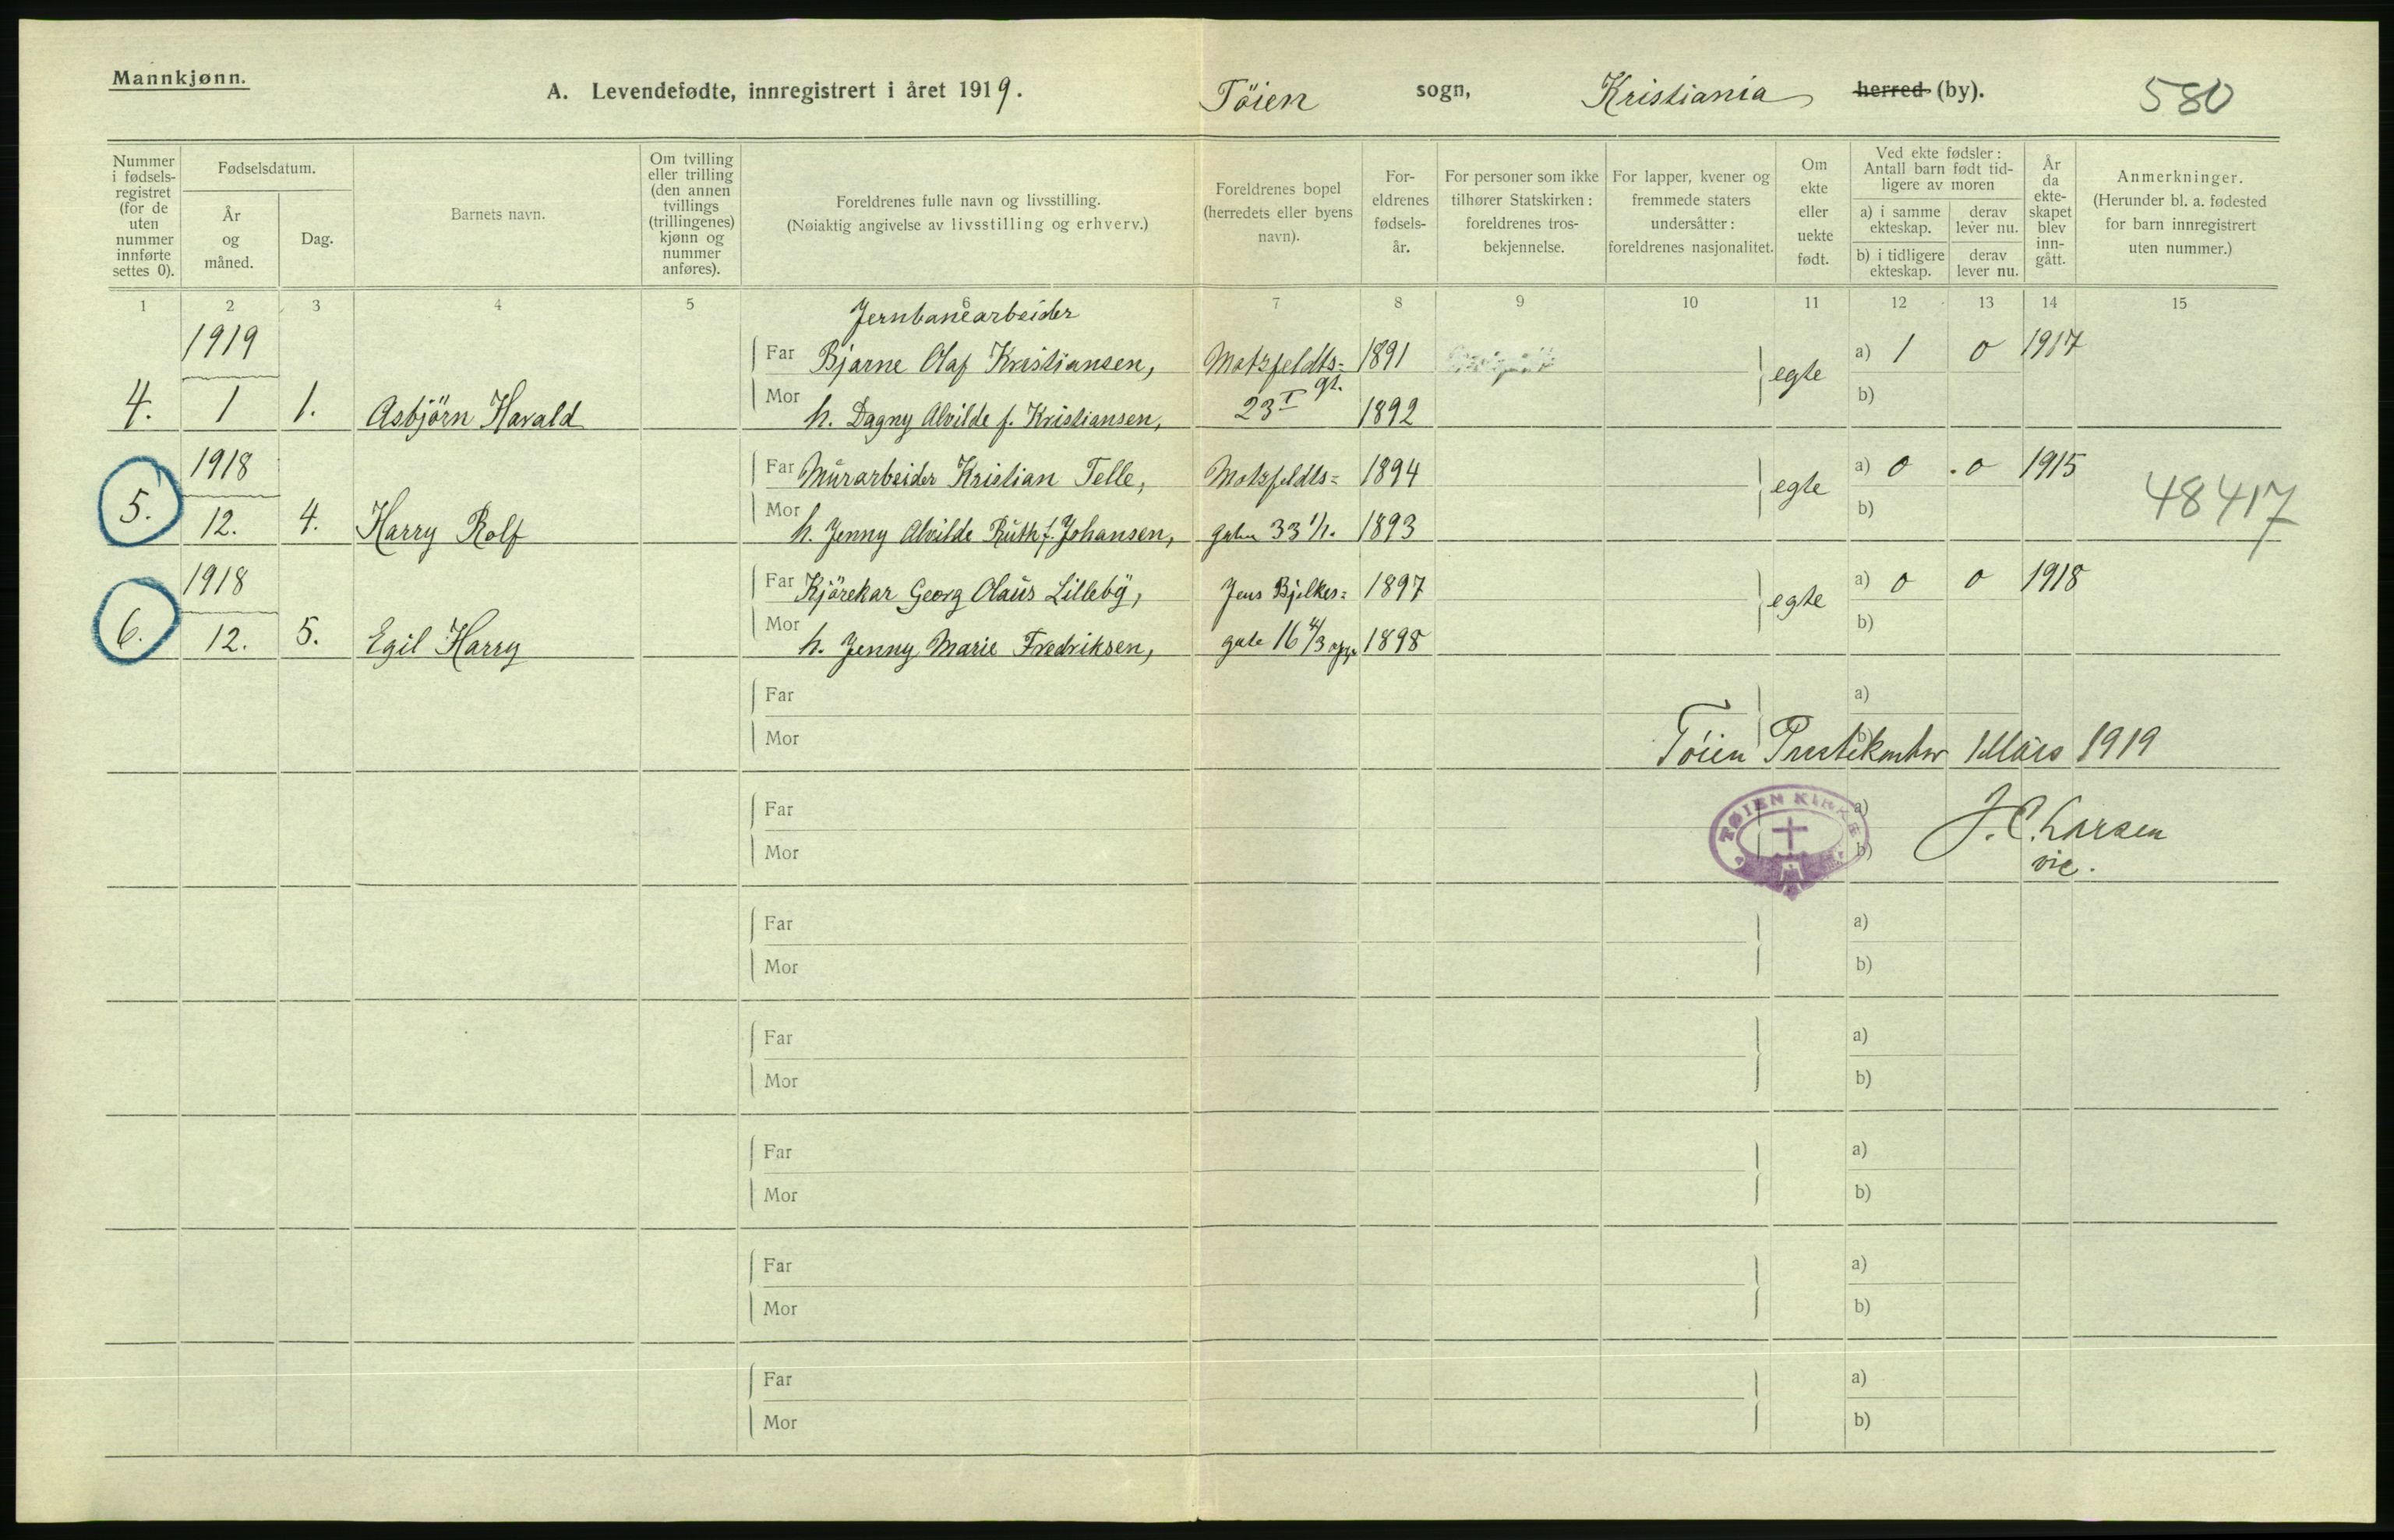 Mannkjønn.
A. Levendefødte, innregistrert i året 1919. Töien sogn, Kristiania herred (by). 580
Nummer i fødsels-registret (for de uten nummer innførte settes 0).
Fødselsdatum.
År og måned.
Dag.
Barnets navn.
Om tvilling eller trilling (den annen tvillings (trillingenes) kjønn og nummer anføres).
Foreldrenes fulle navn og livsstilling.
(Nøiaktig angivelse av livsstilling og erhverv.)
Foreldrenes bopel (herredets eller byens navn).
For-eldrenes fødsels-år.
For personer som ikke tilhører Statskirken: foreldrenes tros-bekjennelse.
For lapper, kvener og fremmede staters undersåtter: foreldrenes nasjonalitet.
Om ekte eller uekte født.
Ved ekte fødsler: Antall barn født tid-ligere av moren
a) i samme ekteskap.
derav lever nu.
b) i tidligere ekteskap.
derav lever nu.
År da ekte-skapet blev inn-gått.
Anmerkninger.
(Herunder bl. a. fødested for barn innregistrert uten nummer.)
1 2 3 4 5 6 7 8 9 10 11 12 13 14 15
Jernbanearbeider
1919 Far Bjarne Olaf Kristiansen, Motzfeldts= 1891 egte a) 1 0 1917
gt.
4. 1 1. Asbjörn Harald Mor h. Dagny Alvilde f. Kristiansen, 23 I 1892 b)
1918 Far Murarbeider Kristian Telle, Motzfeldts= 1894 egte a) 0 0 1915
48417
5. 12. 4. Harry Rolf Mor h. Jenny Alvilde Ruth f. Johansen, gaten 33 1/1. 1893 b)
1918 Far Kjörekar Georg Olaus Lilleby, Jens Bjelkes= 1897 egte a) 0 0 1918
6. 12. 5. Egil Harry Mor h. Jenny Marie Fredriksen, gate 16 4/3 opg. 1898 b)
Far a)
Mor b)
Töien Prestekontor 1 Mars 1919
Far a)
TØIEN KIRKE
J. C. Larsen
Mor b)
vic.
Far a)
Mor b)
Far a)
Mor b)
Far a)
Mor b)
Far a)
Mor b)
Far a)
Mor b)